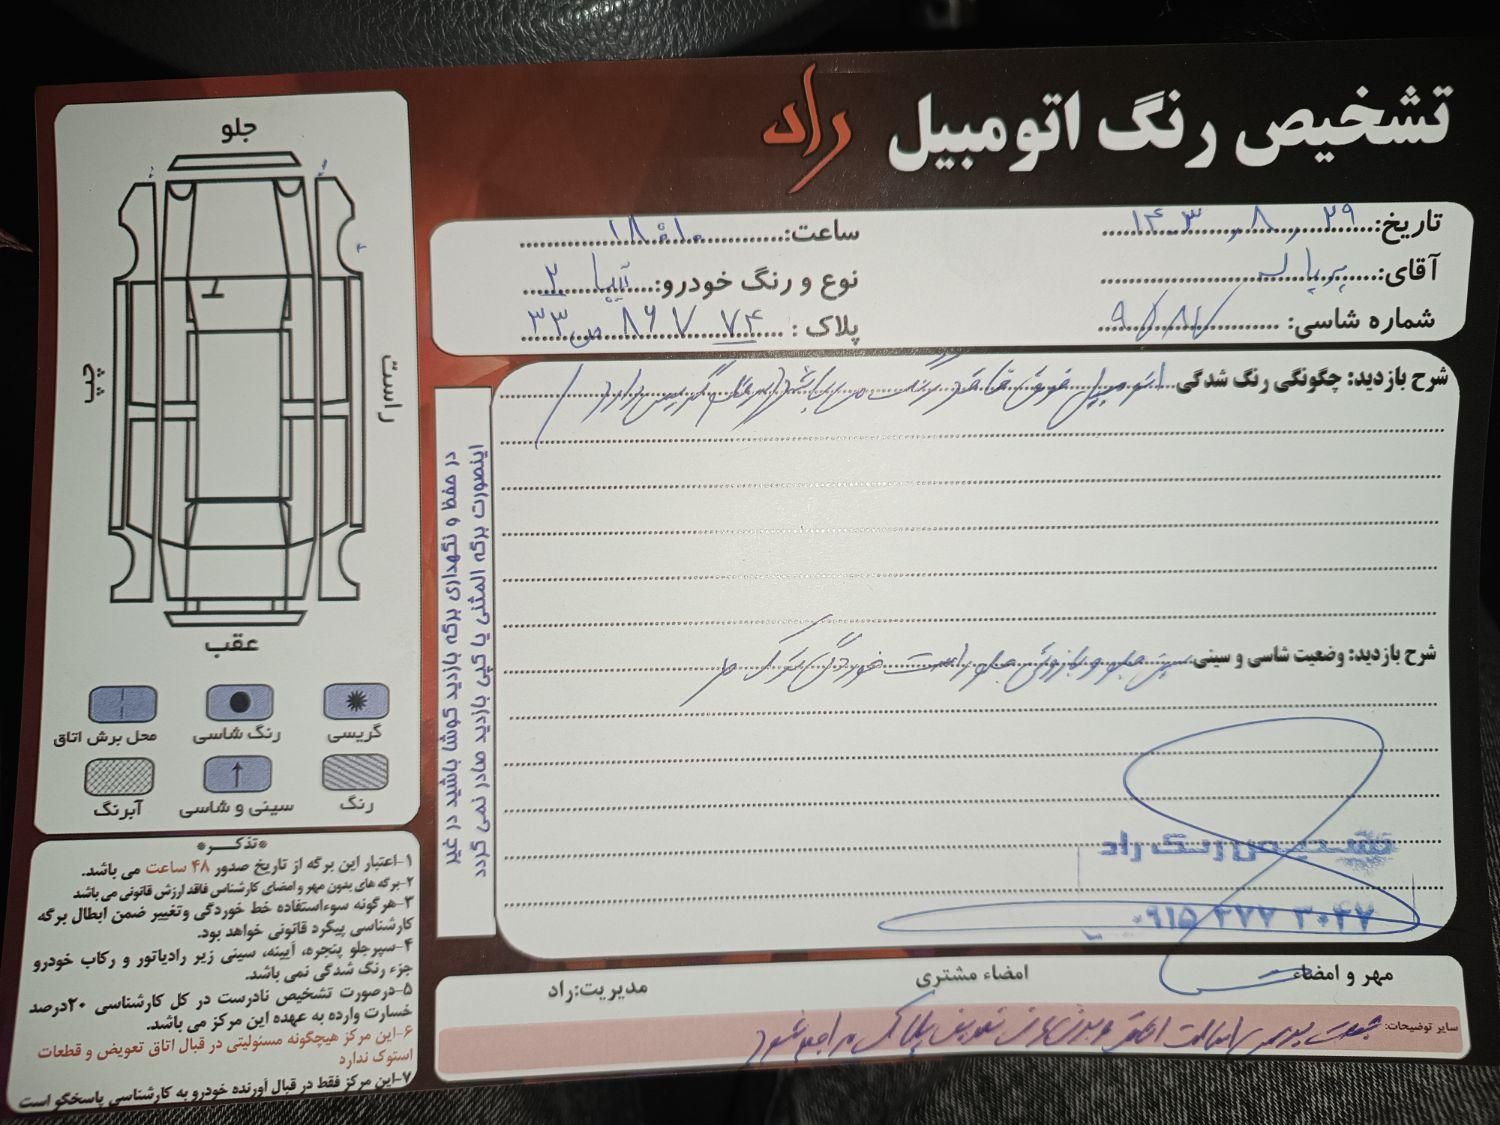 تشخیص رنگ اتومبیل راد
تاریخ: ۱۴۰۳/۸/۲۹
ساعت: ۱۸:۱۰
آقای:
نوع و رنگ خودرو: تیبا ۲
شماره شاسی:
پلاک: ۷۴ ۸۶۷ س ۳۳
شرح بازدید: چگونگی رنگ شدگی اتومبیل فوق فاقد رنگ می باشد گریس دارد
شرح بازدید: وضعیت شاسی و سینی سینی جلو و بازوئی جلو راست خوردگی
تشخیص رنگ راد
۰۹۱۵ ۲۷۷ ۳۰۴۷
مهر و امضاء
امضاء مشتری
مدیریت: راد
سایر توضیحات: جهت بررسی اصالت اتاق و به تعویض پلاک مراجعه شود
در حفظ و نگهداری برگه بازدید کوشا باشید در غیر
اینصورت برگه المثنی یا کپی بازدید صادر نمی گردد
جلو
چپ
راست
عقب
گریسی
رنگ شاسی
محل برش اتاق
رنگ
سینی و شاسی
آبرنگ
*تذکـــر*
۱-اعتبار این برگه از تاریخ صدور ۴۸ ساعت می باشد.
۲-برگه های بدون مهر و امضای کارشناس فاقد ارزش قانونی می باشد
۳-هرگونه سوءاستفاده خط خوردگی وتغییر ضمن ابطال برگه
کارشناسی پیگرد قانونی خواهد بود.
۴-سپرجلو پنجره، آیینه، سینی زیر رادیاتور و رکاب خودرو
جزء رنگ شدگی نمی باشد.
۵-درصورت تشخیص نادرست در کل کارشناسی ۲۰درصد
خسارت وارده به عهده این مرکز می باشد.
۶-این مرکز هیچگونه مسئولیتی در قبال اتاق تعویض و قطعات
استوک ندارد
۷-این مرکز فقط در قبال آورنده خودرو به کارشناسی پاسخگو است